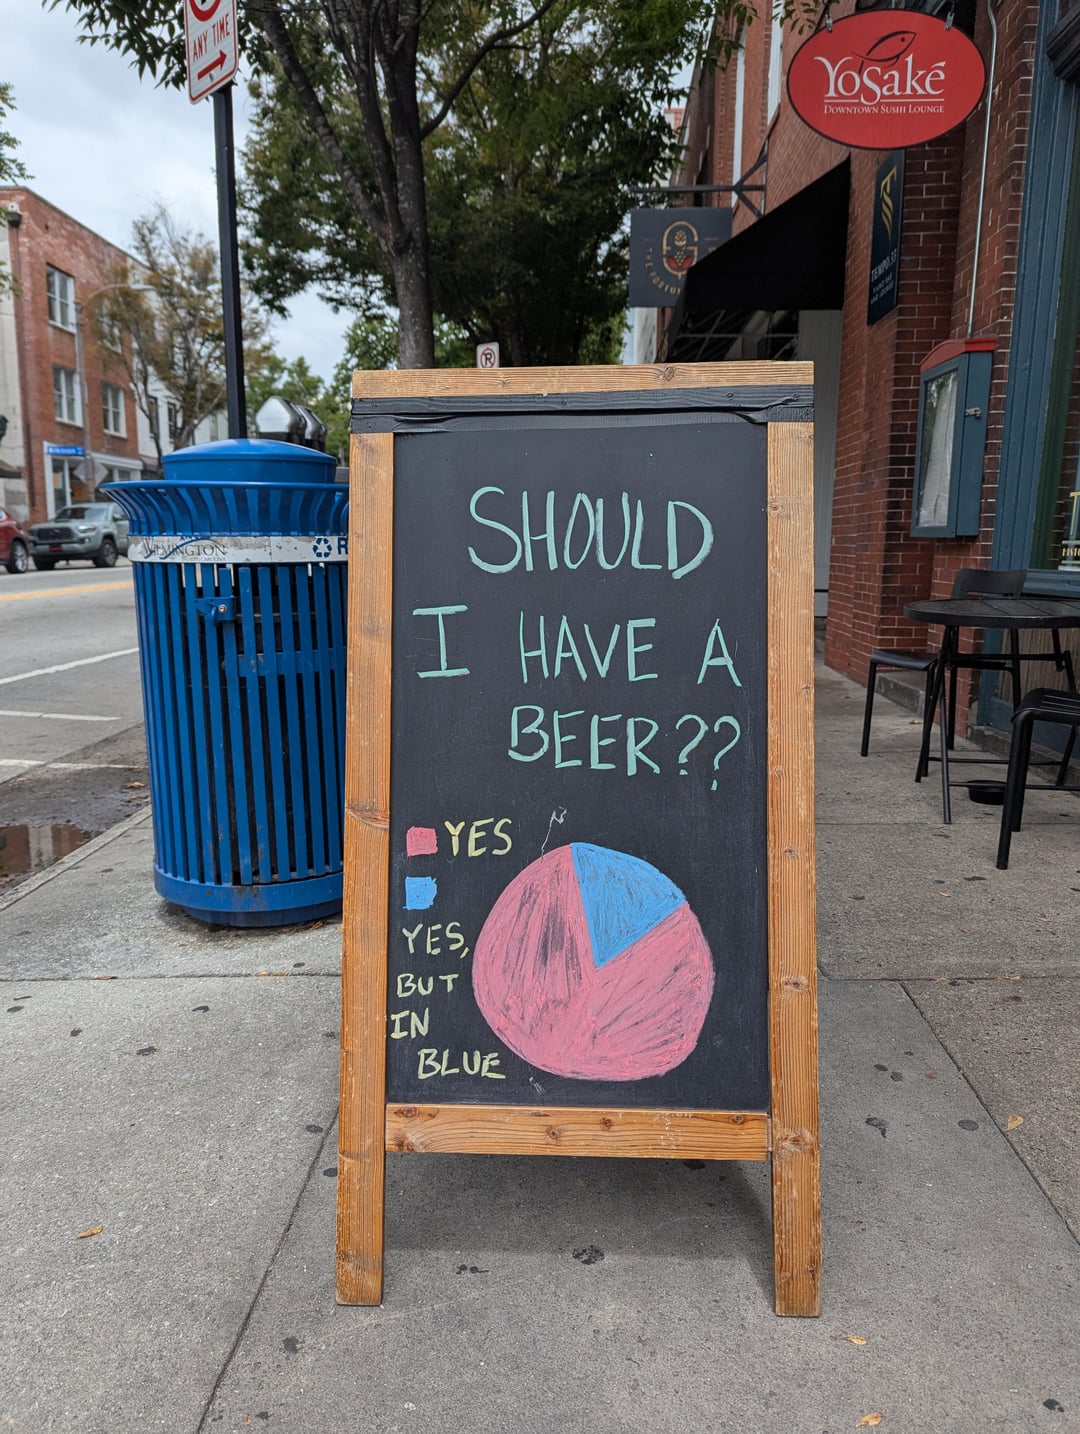 ANY TIME
YoSaké
DOWNTOWN SUSHI LOUNGE
THE
TEMPO
WILMINGTON
R
SHOULD
I HAVE A
BEER??
YES
YES,
BUT
IN
BLUE